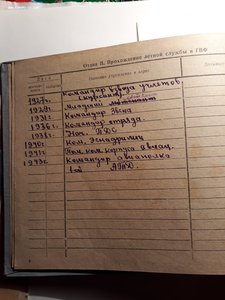 Отдел II. Прохождение летной службы в ГВФ
Дата
Название учреждения и адрес
1927г. Командир взвода учлетов.
(курсант)
1929г. Младший
1931г. Командир звена
1936г. Командир отряда.
1938г. Нач.
1940г. Ком. эскадрильи
1941г. Пом. ком. корпуса авиац.
1943г. Командир авиаполка
1ой